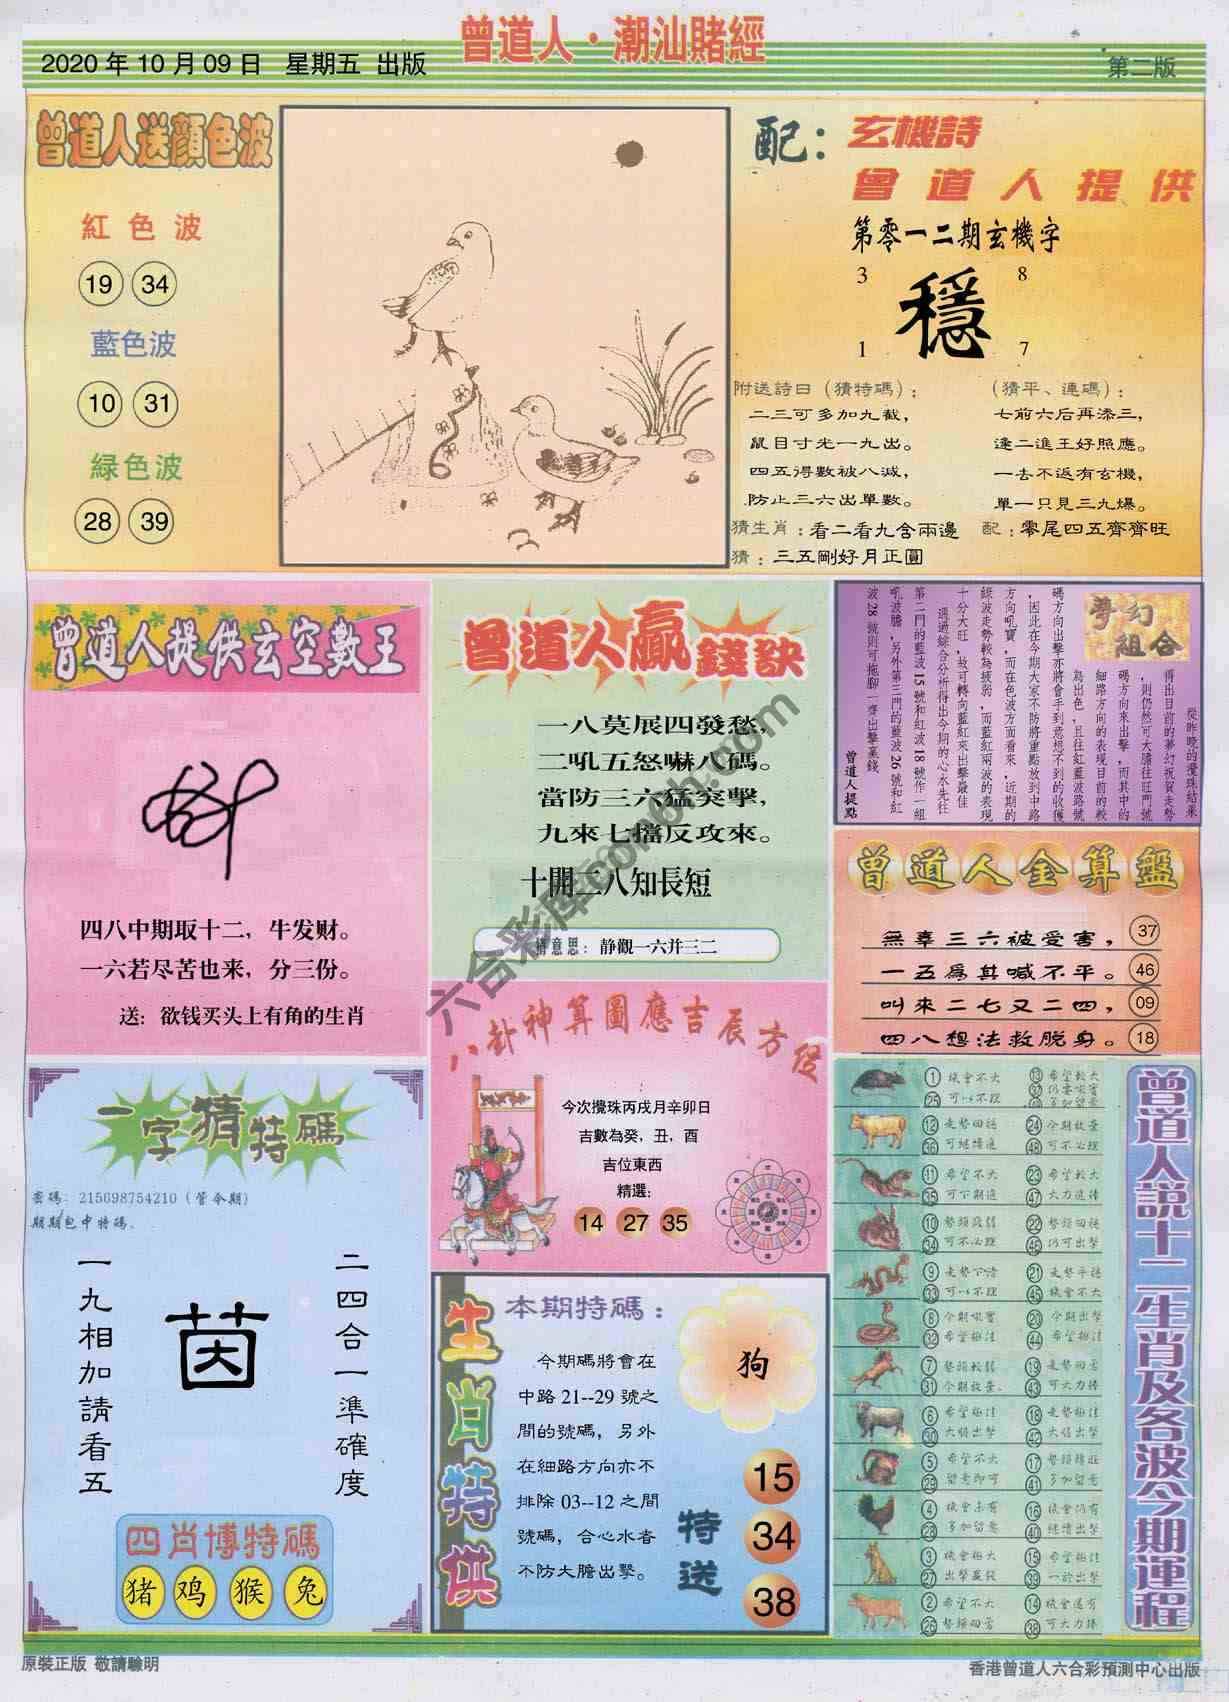 曾道人·潮汕賭經
2020年10月09日 星期五 出版
第二版
曾道人送顏色波
紅色波
19 34
藍色波
10 31
緑色波
28 39
配：玄機詩
曾道人提供
第零一二期玄機字
3 8
穩
1 7
附送詩曰（猜特碼）：
二三可多加九截，
鼠目寸光一九出。
四五得數被八減，
防止三六出單數。
（猜平、連碼）：
七前六后再添三，
逢二進王好照應。
一去不返有玄機，
單一只見三九爆。
猜生肖：看二看九含兩邊
配：零尾四五齊齊旺
猜：三五剛好月正圓
曾道人提供玄空數王
四八中期取十二，牛发财。
一六若尽苦也来，分三份。
送：欲钱买头上有角的生肖
曾道人贏錢訣
一八莫展四發愁，
二吼五怒嚇八碼。
當防三六猛突擊，
九來七擋反攻來。
十開二八知長短
猜意思：静觀一六并三二
夢幻組合
從昨晚的攪珠結果
得出目前的夢幻祝賀走勢
，則仍然可大膽往旺門號
碼方向來出擊，而其中的
細路方向的表現目前的較
為出色，且往紅藍波路號
碼方向出擊亦將會手到意想不到的收獲
，因此在今期大家不防將重點放到中路
方向吼寶，而在色波方面看來，近期的
綠波走勢較為疲弱，而藍紅兩波的表現
十分大旺，故可轉向藍紅來出擊最佳
通過綜合分析得出今期的心水先往
第二門的藍波15號和紅波18號作一組
吼波膽，另外第三門的藍波26號和紅
波28號則可拖腳一齊出擊贏錢
曾道人提點
曾道人金算盤
無辜三六被受害， 37
一五爲其喊不平。 46
叫來二七又二四， 09
四八想法救脱身。 18
八卦神算圖應吉辰方位
今次攪珠丙戌月辛卯日
吉數為癸，丑，酉
吉位東西
精選：
14 27 35
一字猜特碼
密碼：215698754210（管今期）
期期包中特碼．
二四合一準確度
茵
一九相加請看五
四肖博特碼
猪 鸡 猴 兔
生肖特供
本期特碼：
今期碼將會在
中路21--29號之
間的號碼，另外
在細路方向亦不
排除03--12之間
號碼，合心水者
不防大膽出擊。
狗
特送
15
34
38
曾道人說十二生肖及各波今期運程
1 機會不大 13 希望較大
25 可以不理
12 走勢回穩 24 今期放量
36 可繼續追 48 可不必理
11 希望不大 23 希望較大
35 可下期追 47 大力追捧
10 勢頭疲弱 22 勢頭回穩
34 可不必理 46 仍可出擊
9 走勢下滑 21 走勢平穩
33 可以不理 45 機會不大
8 今期吼實 20 今期出擊
32 希望極佳 44 希望極佳
7 勢頭較弱 19 走勢回落
31 今期放量 43 可大力捧
6 希望極佳 18 走勢極佳
30 大膽出擊 42 大膽出擊
5 希望不大 17 勢頭轉旺
29 留意即可 41 多加留意
4 機會未有 16 機會仍有
28 多加留意 40 繼續出擊
3 機會極大 15 希望極佳
27 出擊贏錢 39 一於出擊
2 希望不大 14 機會還有
26 勢頭回落 38 可大力捧
原裝正版 敬請驗明
香港曾道人六合彩預測中心出版
六合彩库conph.com